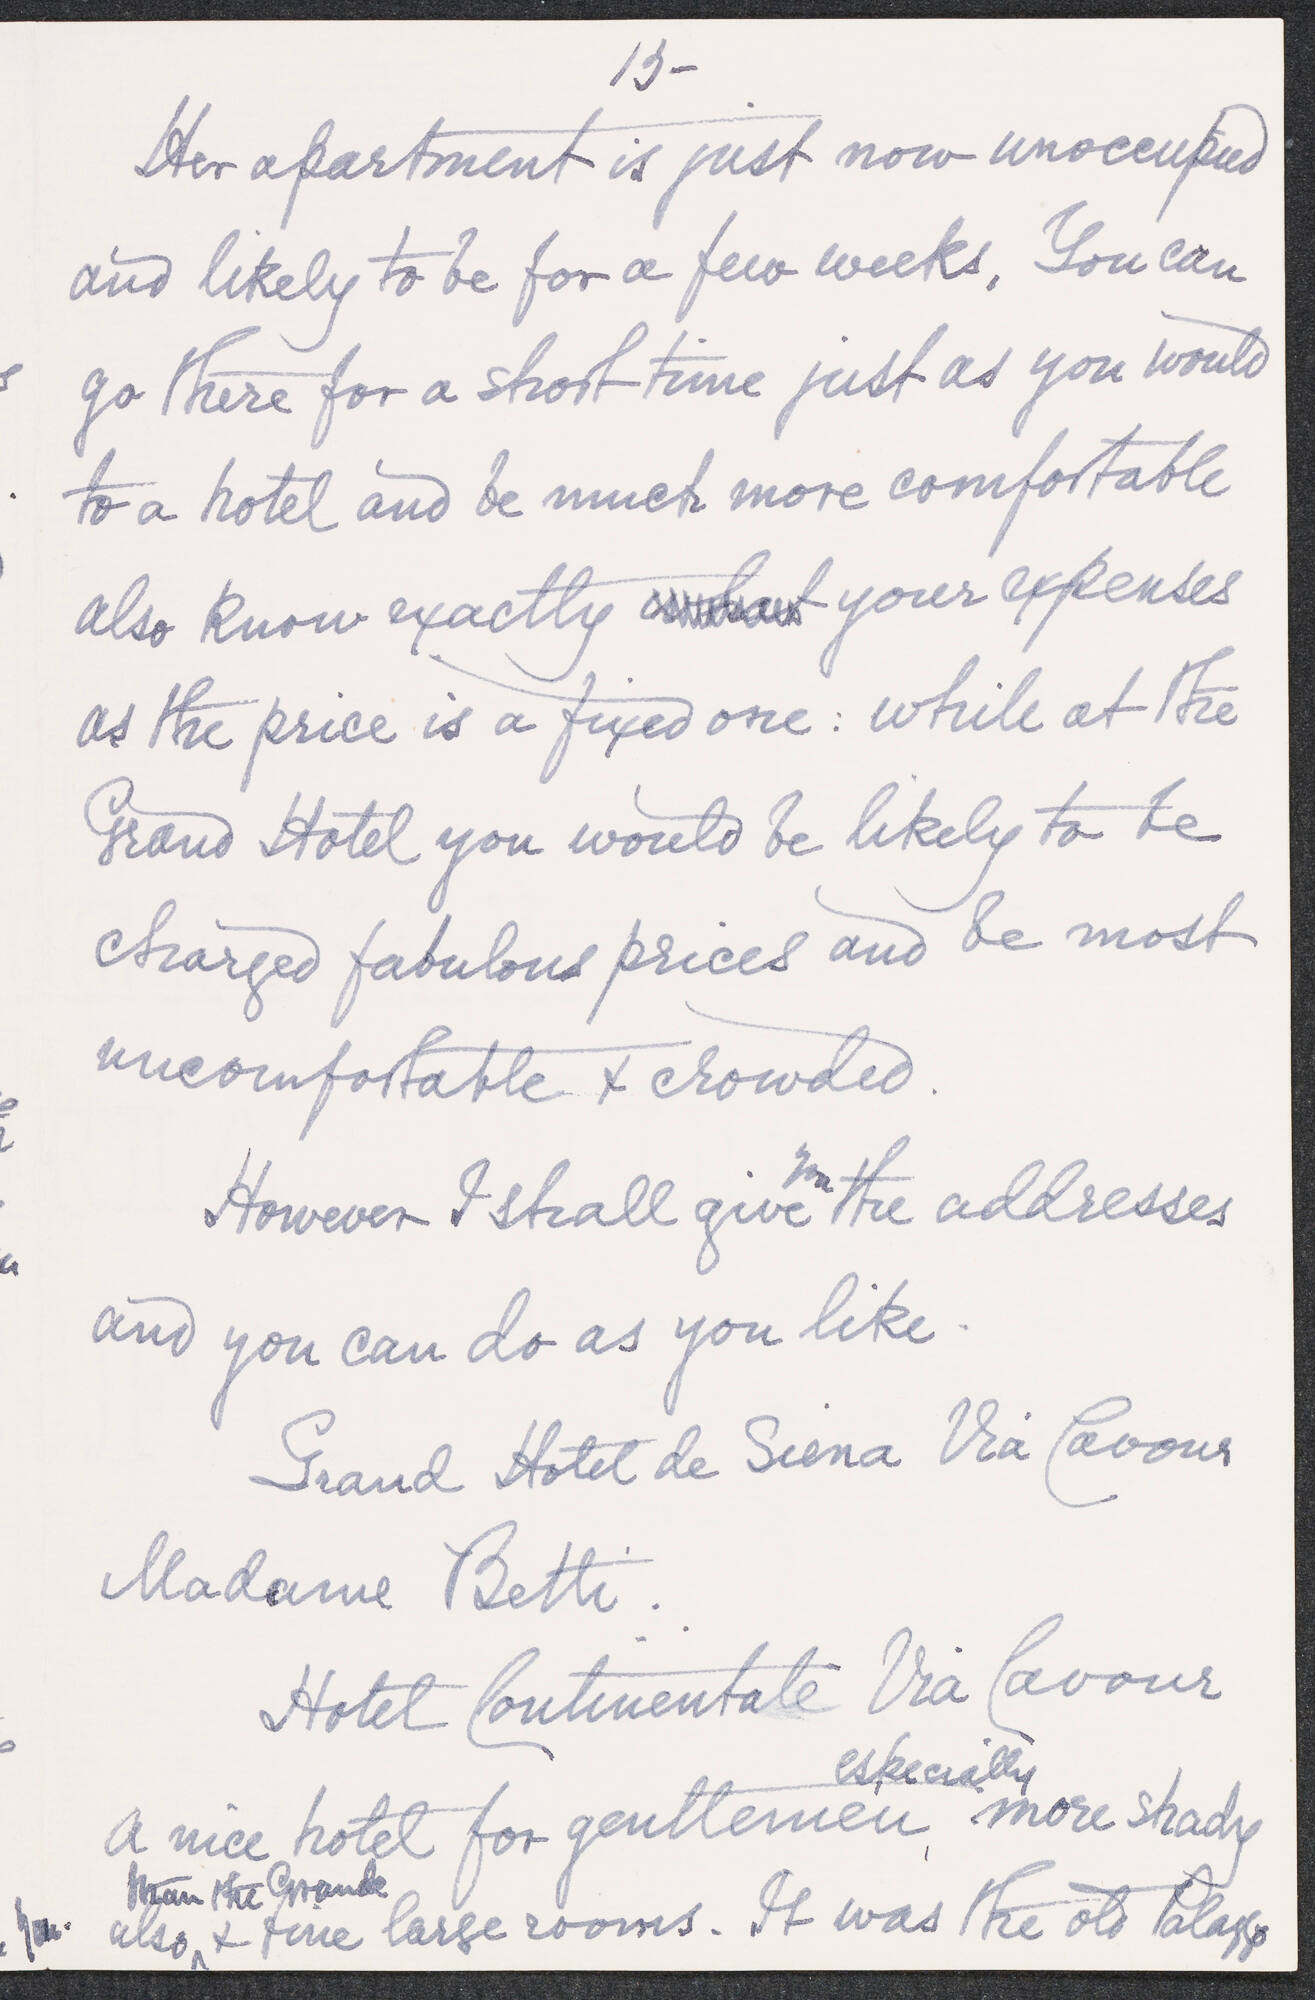 13-
Her apartment is just now unoccupied
and likely to be for a few weeks, You can
go there for a short time just as you would
to a hotel and be much more comfortable
also know exactly your expenses
as the price is a fixed one: while at the
Grand Hotel you would be likely to be
charged fabulous prices and be most
uncomfortable & crowded.
However I shall give you the addresses
and you can do as you like.
Grand Hotel de Siena Via Cavour
Madame Betti.
Hotel Continentale Via Cavour
especially
a nice hotel for gentlemen, more shady
than the Grande
also, & fine large rooms. It was the old Palazzo